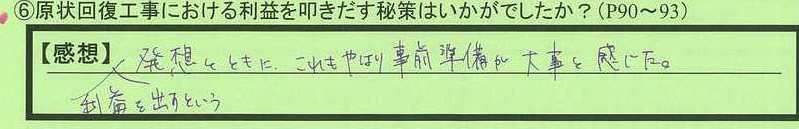 ⑥原状回復工事における利益を叩きだす秘策はいかがでしたか？(P90～93)
【感想】発想とともに、これもやはり事前準備が大事と感じた。
利益を出すという